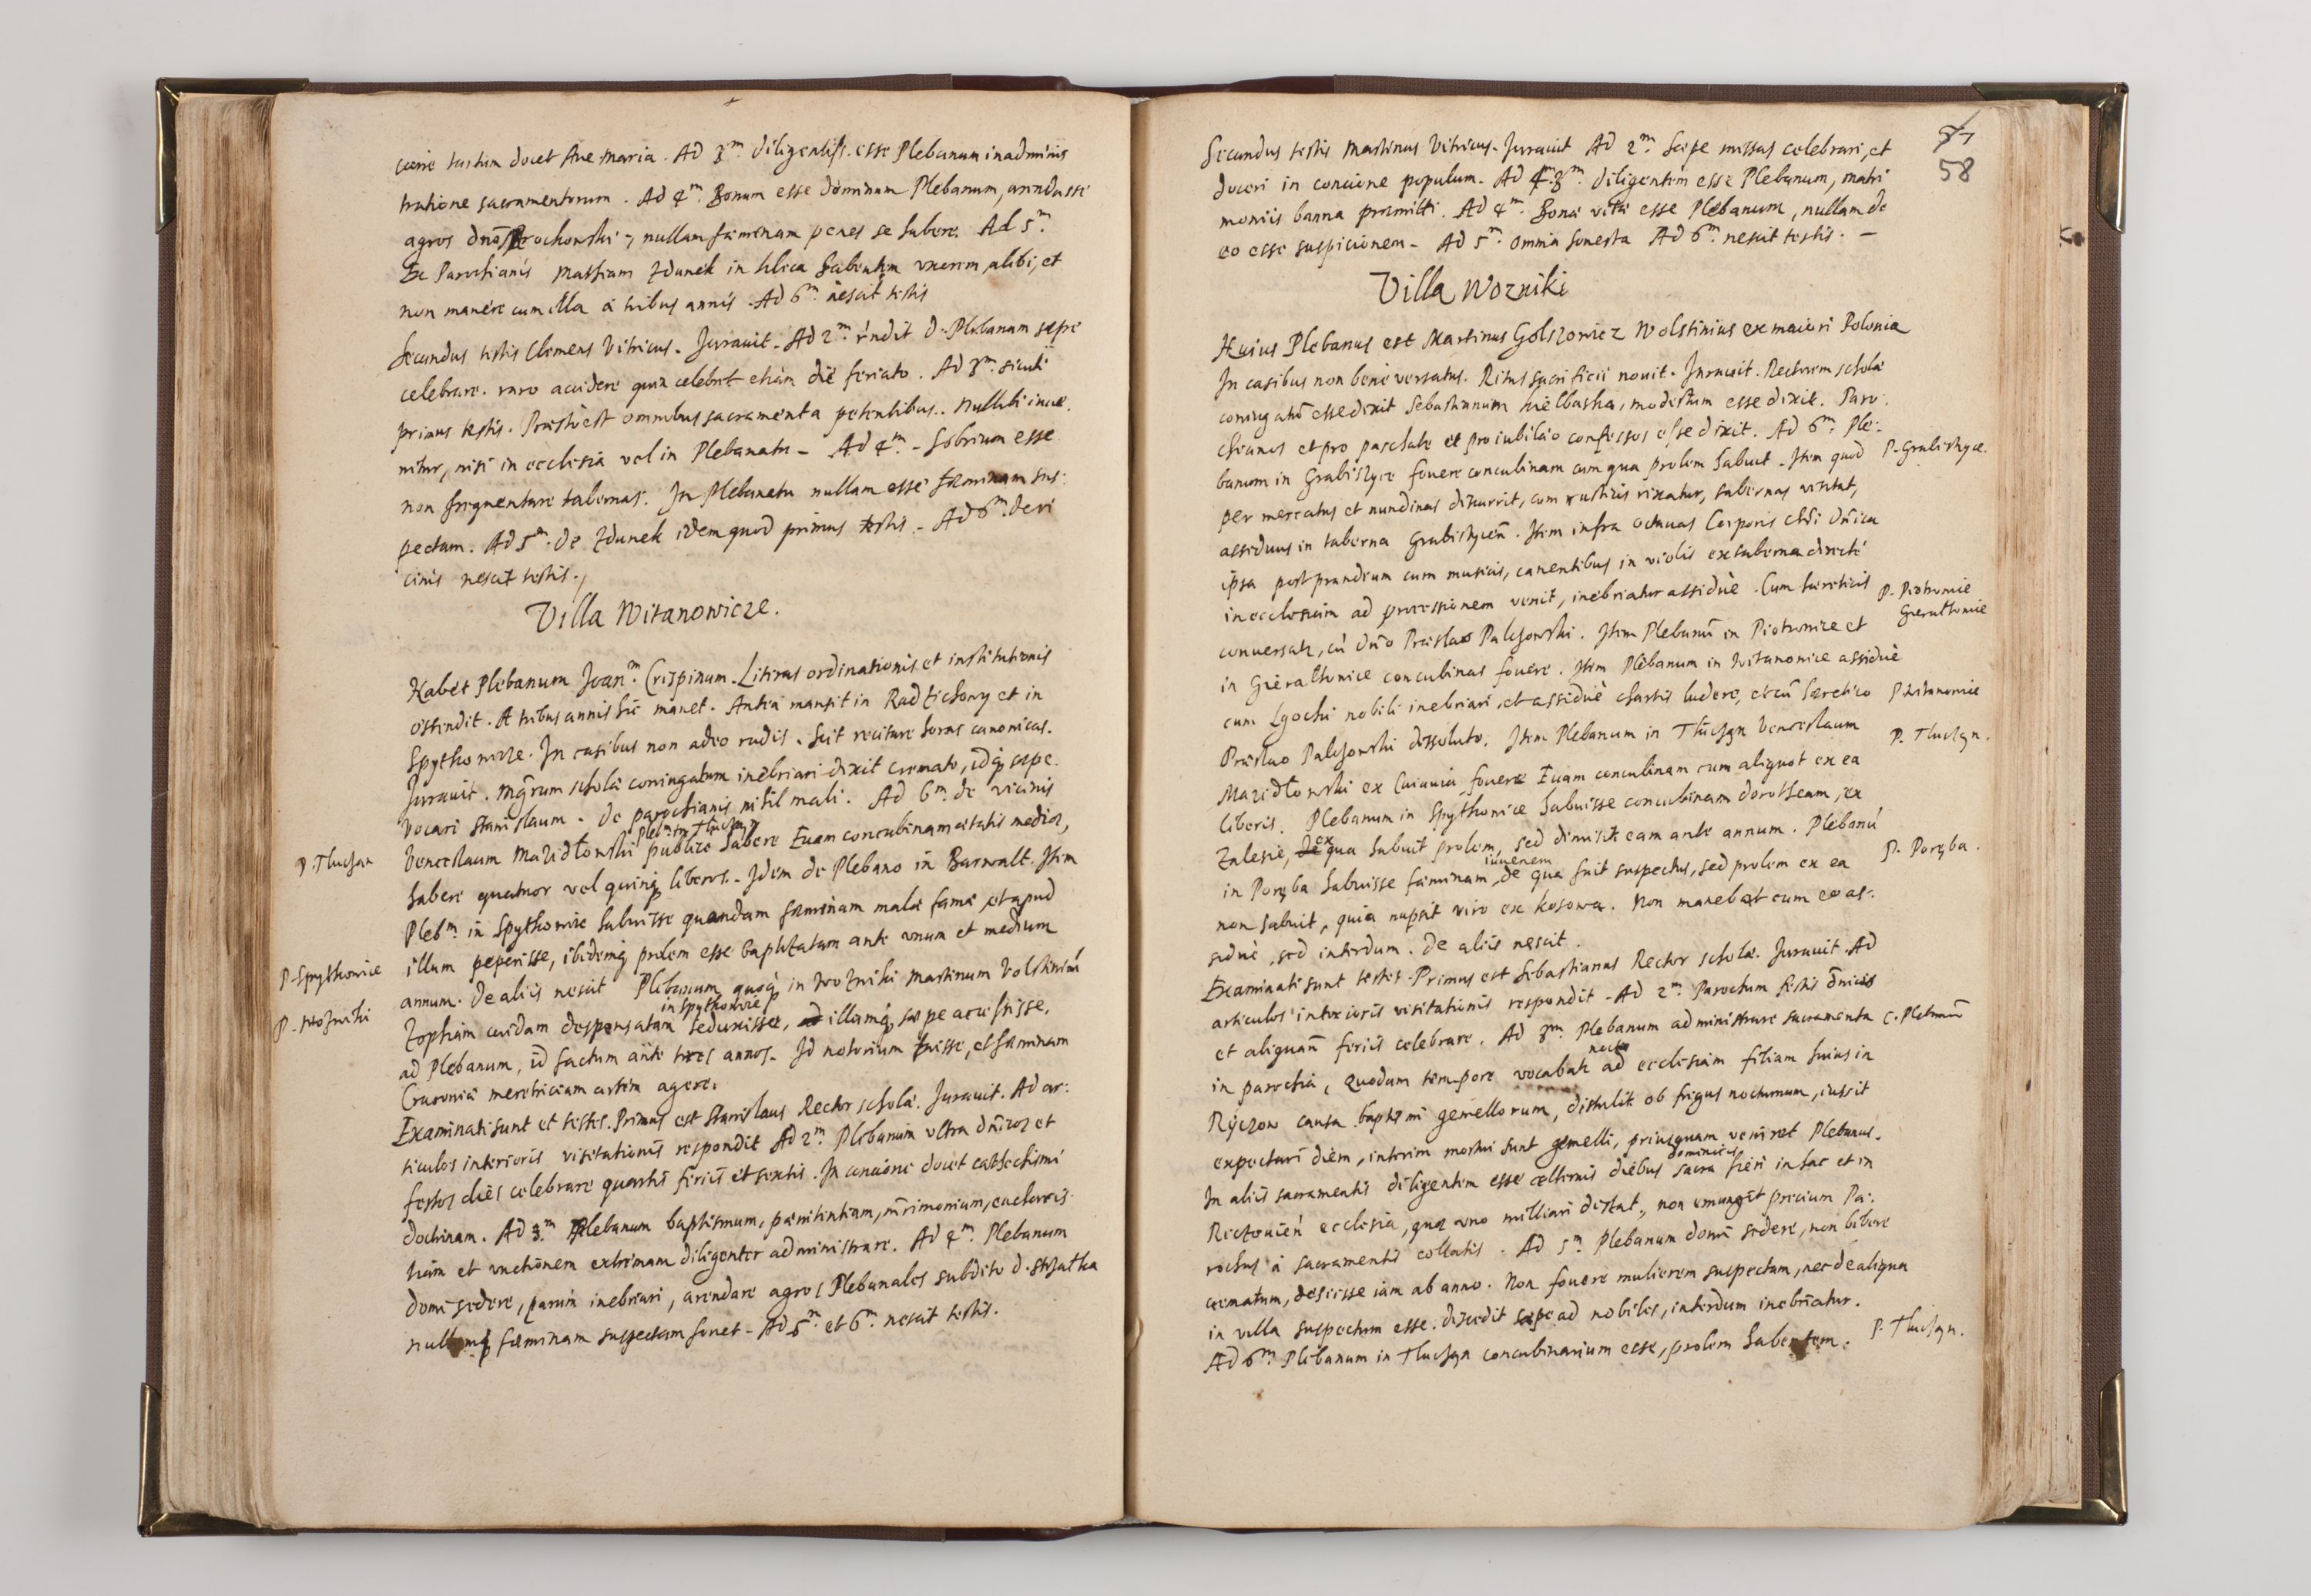 tantum docet Ave Maria. Ad 3m. diligentiss. esse Plebanum in adminis
tratione sacramentorum. Ad 4m. Bonum esse dominum Plebanum, arendasse
agros dno Prochowski, nullam fæminam penes se habere. Ad 5m.
Ex Parochianis Mathiam Zdunek in habentem uxorem alibi, et
non manere cum illa a tribus annis. Ad 6m. nescit testis
Secundus testis Clemens Vitricus. Juravit. Ad 2m. rndit D. Plebanum sæpe
celebrare. raro accidere quin celebret etiam die feriato. Ad 3m. sicuti
primus testis. Præsto est omnibus sacramenta petentibus. Nullibi inve
nitur, nisi in ecclesia vel in Plebanatu. Ad 4m. Sobrium esse
non frequentare tabernas. In Plebanatu nullam esse fæminam sus:
pectam. Ad 5m. de Zdunek idem quod primus testis. Ad 6m. de vi
cinis nescit testis.
Villa Witanowicze.
Habet Plebanum Joan m. Crispinum. Literas ordinationis et institutionis
ostendit. A tribus annis hic manet. Antea mansit in Radzichowy et in
Spythowicze. In casibus non adeo rudis. Scit recitare horas canonicas.
Juravit. Mgrum scholæ coniugatum inebriari dixit cremato, idq sæpe.
Vocari Stanislaum. De parochianis nihil mali. Ad 6m. de vicinis
Pleb m in Tluczan
P. Tluczan
Venceslaum Mazidlowski publice habere Evam concubinam ætatis mediæ,
habere quatuor vel quinq liberos. Idem de Plebano in Barwalt. Item
Pleb m. in Spythowice habuisse quandam fæminam malæ famæ, et apud
P. Spythowice
illum peperisse, ibidemq prolem esse baptizatam ante unum et medium
annum. De aliis nescit Plebanum quoq in Wozniki Martinum Volstinium
P. Wozniki
in Spythowice
Zophiam cuidam desponsatam seduxisse, illamq sæpe accessisse,
ad Plebanum, id factum ante tres annos. Id notorium fuisse, et fæminam
Cracoviæ meretriciam artem agere.
Examinati sunt et testes. Primus est Stanislaus Rector scholæ. Juravit. Ad ar:
ticulos interioris visitationis respondit Ad 2m. Plebanum ultra dnicos et
festos dies celebrare quartis feriis et sextis. In concione docet cathechismi
doctrinam. Ad 3.m Plebanum baptismum, pænitentiam, mrimonium, eucharis:
tiam et unctionem extremam diligenter administrare. Ad 4m. Plebanum
domi sedere, parum inebriari, arendare agros Plebanales subdito D. Strzatka
nullamq fæminam suspectam fovet. Ad 5m. et 6m. nescit testis.
57
58
Secundus testis Martinus Vitricus. Juravit Ad 2m. Sæpe missas celebrari, et
doceri in concione populum. Ad 3m. diligentem esse Plebanum, matri
moniis banna præmitti. Ad 4m. Bonæ vitæ esse Plebanum, nullam de
eo esse suspicionem. Ad 5m. omnia honesta Ad 6m. nescit testis.
Villa Wozniki
Huius Plebanus est Martinus Golszowicz Wolstinius ex maiori Polonia
In casibus non bene versatus. Ritus sacrificii novit. Juravit. Rectorem scholæ
coniugatum esse dixit Sebastianum Kielbaska, modestum esse dixit. Paro:
chianos et pro paschate et pro iubilæo confessos esse dixit. Ad 6m. Ple:
banum in Grabiszyce fovere concubinam cum qua prolem habuit. Item quod
P. Grabiszyce.
per mercatus et nundinas discurrit, cum rusticis rixatur, tabernas visitat,
assiduus in taberna Grabiszycen. Item infra octavas Corporis Chri dnica
ipsa post prandium cum musicis, canentibus in violis ex taberna directe
in ecclesiam ad processionem venit, inebriatur assidue. Cum hæreticis
P. Piotrowice
Gieraltowice
conversatur, cu dno Præslao Palczowski. Item Plebanu in Piotrowice et
in Gieraltowice concubinas fovere. Item Plebanum in Witanowice assidue
cum Lgocki nobili inebriari, et assidue chartis ludere, et cu hæretico
P. Witanowice
Præslao Palczowski dissoluto. Item Plebanum in Tluczan Venceslaum
P. Tluczan.
Mazidlowski ex Cuiavia fovere Evam concubinam cum aliquot ex ea
liberis. Plebanum in Spythowice habuisse concubinam Dorotheam, ex
Zalesie, ex qua habuit prolem, sed dimisit eam ante annum. Plebanu
P. Poręba.
iuvenem
in Poręba habuisse fæminam, de qua fuit suspectus, sed prolem ex ea
non habuit, quia nupsit viro ex Kosowa. Non manebat cum eo as:
sidue, sed interdum. De aliis nescit.
Examinati sunt testes. Primus est Sebastianus Rector scholæ. Juravit. Ad
articulos interioris visitationis respondit. Ad 2m. Parochum festis dnicis
et aliquan feriis celebrare. Ad 3m. Plebanum administrare sacramenta
C. Plebanu
nocte
in parochia, Quodam tempore vocabatur ad ecclesiam filiam huius in
Ryczow causa baptismi gemellorum, distulit ob frigus nocturnum, iussit
expectari diem, interim mortui sunt gemelli, priusquam veniret Plebanus.
dominicis
In aliis sacramentis diligentem esse alternis diebus sacra fieri in hac et in
Riczovien ecclesia, quæ uno milliari distat, non emungit precium Pa:
rochus a sacramentis collatis. Ad 5m. Plebanum domi sedere, non bibere
crematum, desiisse iam ab anno. Non fovere mulierem suspectam, nec de aliqua
in villa suspectum esse. discedit sæpe ad nobiles, interdum inebriatur.
Ad 6m. Plebanum in Tluczan concubinarium esse, prolem habentem.
P. Tluczan.